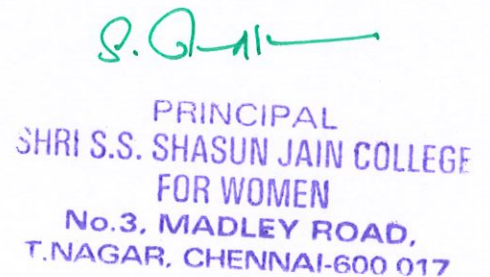 S.
PRINCIPAL
SHRI S.S. SHASUN JAIN COLLEGE
FOR WOMEN
No.3, MADLEY ROAD,
T.NAGAR, CHENNAI-600 017